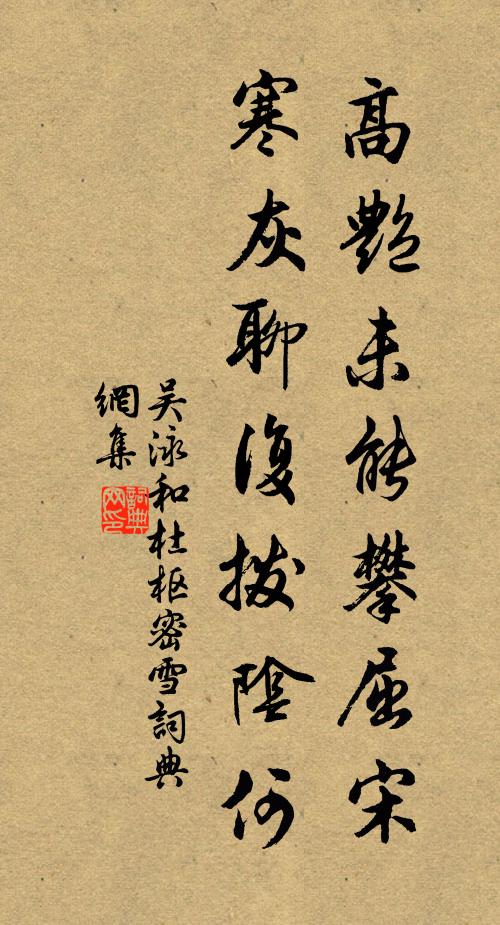 高艷未能攀屈宋
寒灰聊復撥陰何
吴泳和杜枢密雪詞典
網集
詞典
网印